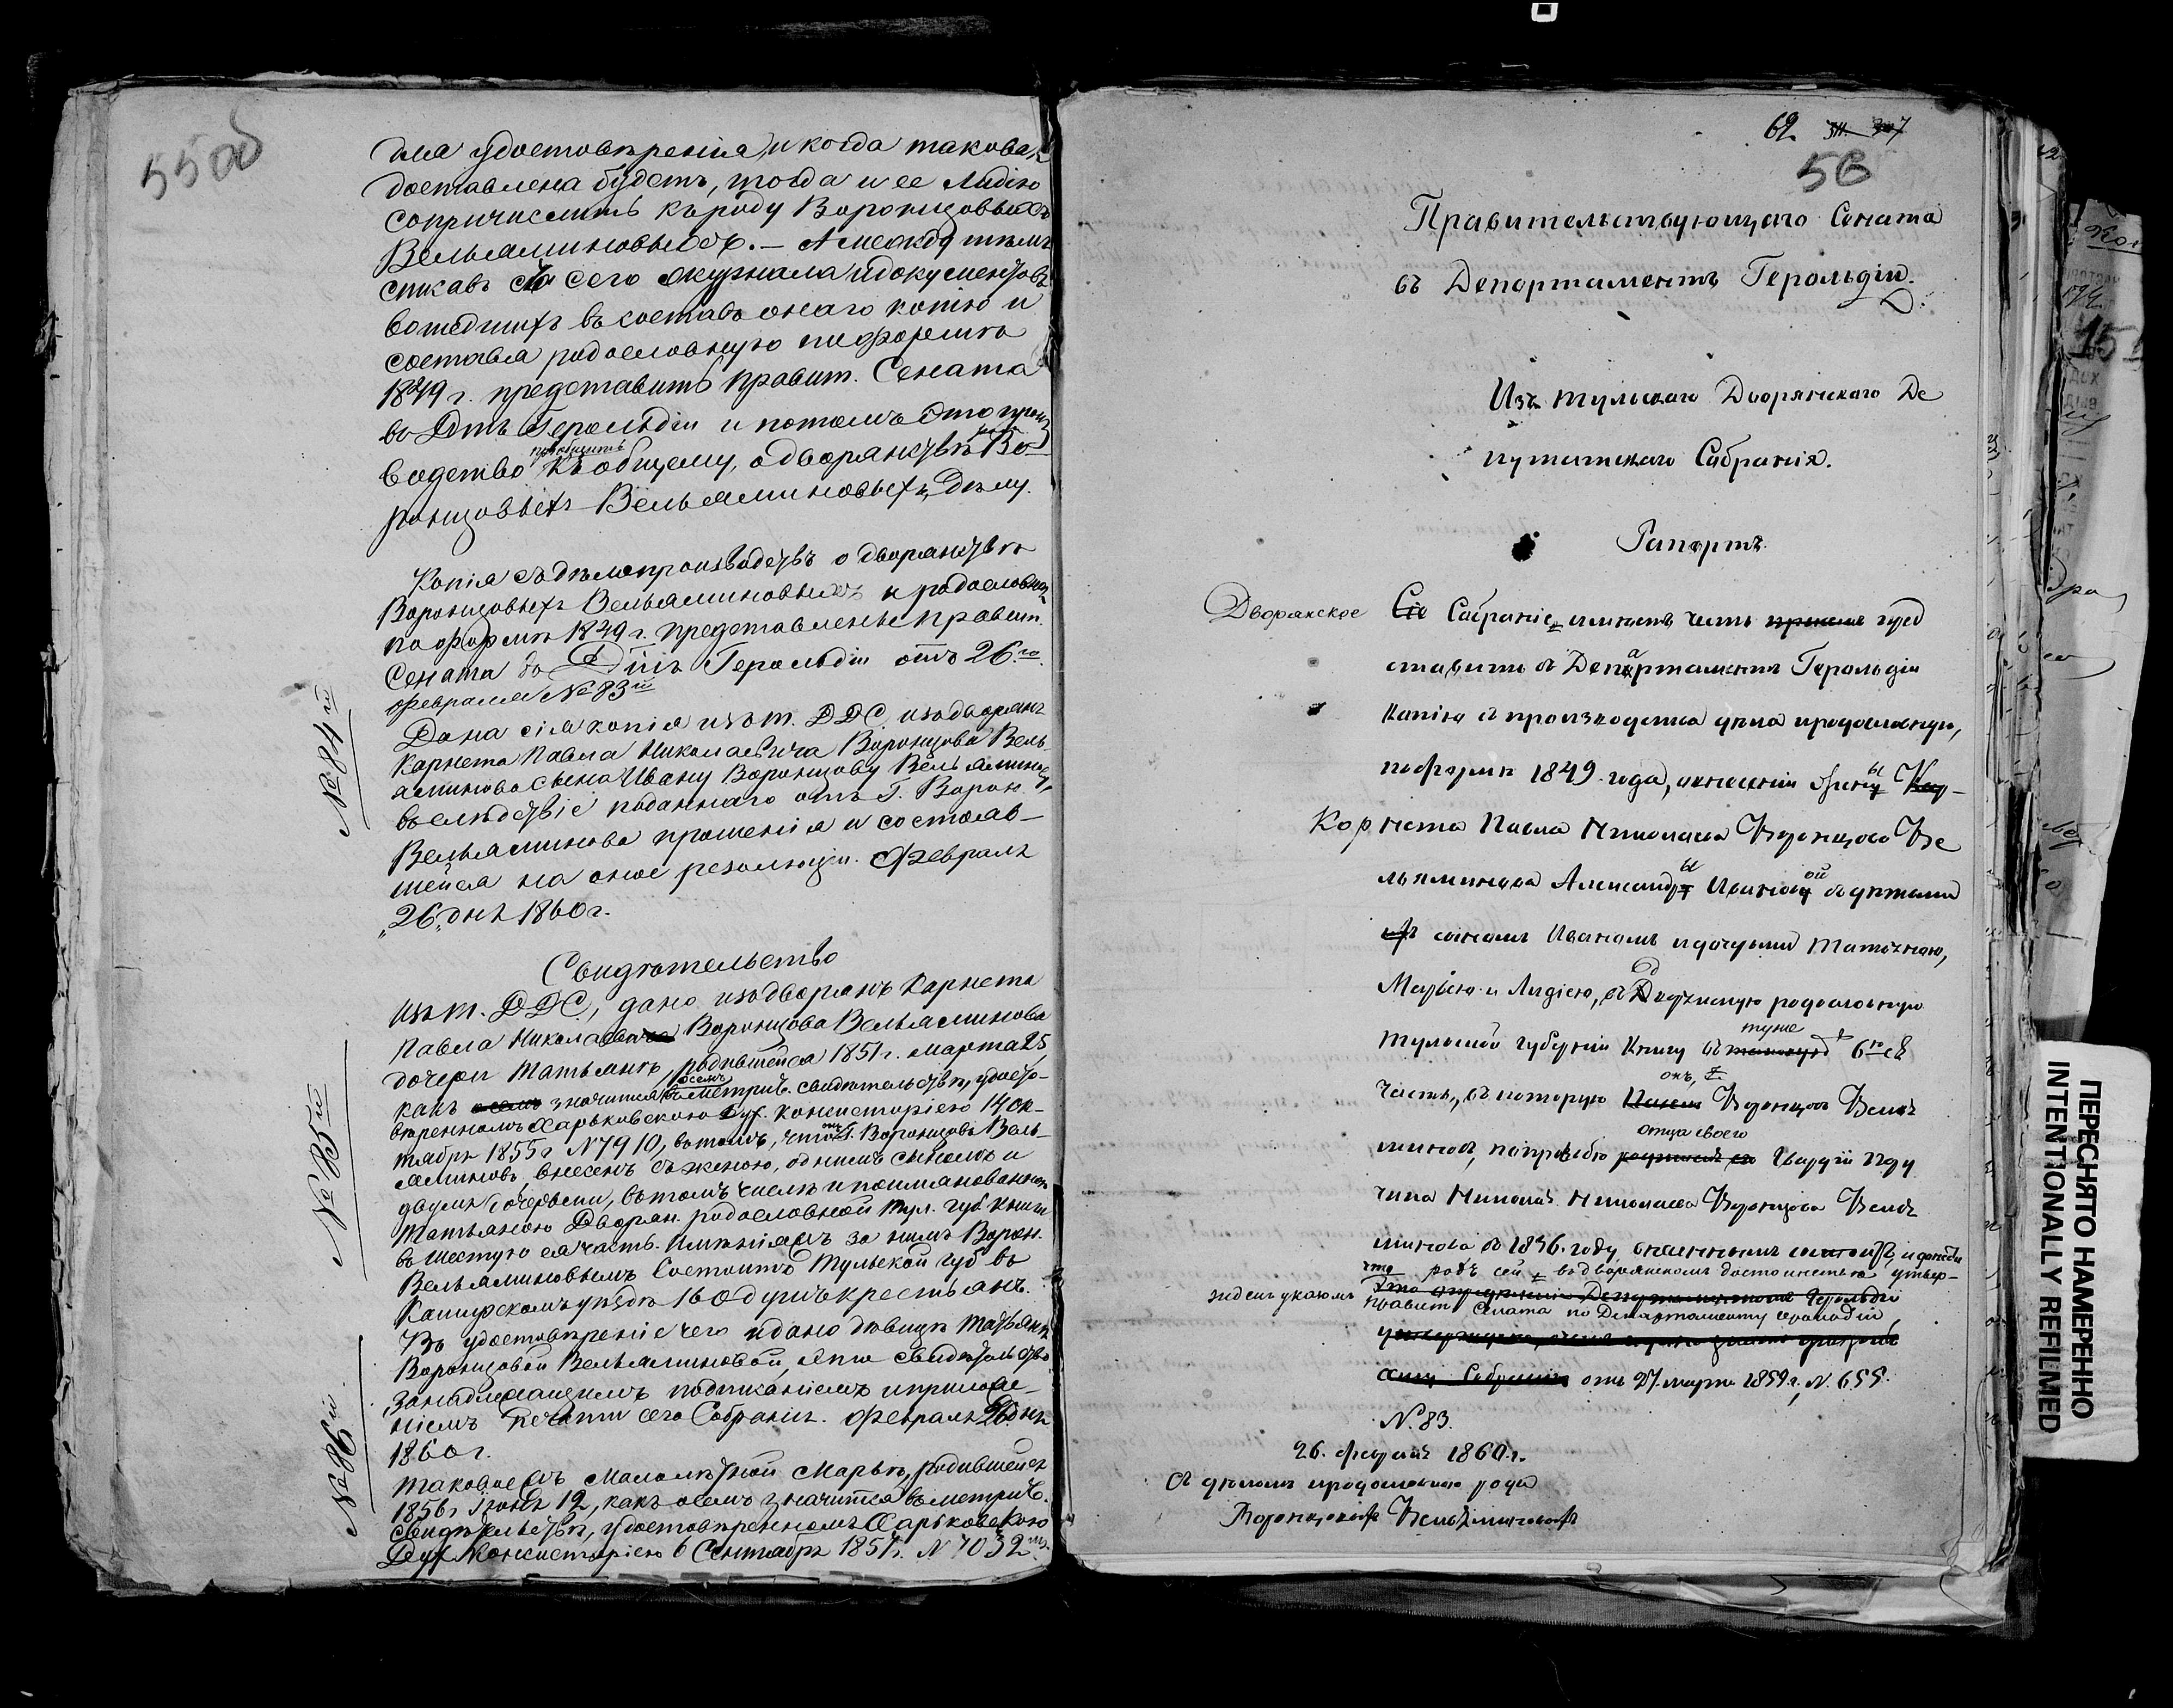 55об
для удостовѣренія, и когда таковая
доставлена будетъ, тогда и ее Лидію
сопричислить къ роду Воронцовыхъ
Вельяминовыхъ. — А между тѣмъ
списавъ съ сего журнала и документовъ
вошедшихъ въ составъ онаго копію и
составя родословную по формѣ
1849 г. представить Правит. Сената
въ Дтъ Герольдіи и потомъ это произ
водство пріобщить къ общему, о дворянствѣ Во-
ронцовыхъ-Вельяминовыхъ, дѣлу.
Копія съ дѣлопроизводствъ о дворянствѣ
Воронцовыхъ Вельяминовыхъ и родословная
по формѣ 1849 г. представлены Правит.
Сената въ Дтъ Герольдіи отъ 26го
февраля № 83й
№ 84й
Дана сія копія изъ Т. ДДС, изъ дворянъ
Карнета Павла Николаевича Воронцова Вель-
яминова сыну Ивану Воронцову Вельяминову,
вслѣдствіе поданнаго отъ Г. Ворон.
Вельяминова прошенія и состояв-
шейся на оное резолюціи. Февраля
„26„ дня 1860 г.
Свидѣтельство
№ 85й
Изъ Т. ДДС, дано изъ дворянъ Карнета
Павла Николаевича Воронцова Вельяминова
дочери Татьянѣ, родившейся 1851 г. марта 25,
какъ о семъ значится въ метрич. свидѣтельствѣ, удосто-
вѣренномъ Харьковскою Дух. Консисторіею 14 ок-
тября 1855 г. № 7910, въ томъ, что онъ Г. Воронцовъ Вель-
яминовъ, внесенъ съ женою, однимъ сыномъ и
двумя дочерьми, въ томъ числѣ и поименованною
Татьяною Дворян. родословной Тул. губ. книги
въ шестую ея часть. Имѣнія съ за нимъ Ворон.
Вельяминовымъ состоитъ Тульской губ. въ
Каширскомъ уѣздѣ 160 душъ крестьянъ.
Въ удостовѣреніе чего и дано дѣвицѣ Татьянѣ
Воронцовой Вельяминовой, это свидѣтельство
за надлежащимъ подписаніемъ и приложе-
ніемъ печати сего Собранія. Февраля 26 дня
1860 г.
№ 86й
Таковое съ Малолѣтной Марьѣ, родившейся
1856 г. Іюня 12, какъ о семъ значится въ метрич.
свидѣтельствѣ, удостовѣренномъ Харьковскою
Дух. Консисторіею 6 Сентября 1857 г. № 7032
62 311. 307
56
Правительствующаго Сената
въ Департаментъ Герольдіи.
Изъ Тульскаго Дворянскаго Де
путатскаго Собранія.
Рапортъ.
Дворянское Сіе Собраніе имѣетъ честь пред
ставить въ Департаментъ Герольдіи
копію съ производства дѣла и родословную,
по формѣ 1849 года, о внесеніи жены Кар-
Корнета Павла Николаева Воронцова Ве
льяминова Александры Ивановой съ дѣтьми
сыномъ Иваномъ и дочерьми Татьяною,
Марьею и Лидіею, въ Дворянскую родословную
Тульской губерніи книгу въ ту же 6ю ея
часть, въ которую онъ, Г. Воронцовъ Велья
миновъ, по просьбѣ отца своего Гвардіи Пору
чика Николая Николаева Воронцова Велья
минова въ 1836 году
что родъ сей въ дворянскомъ достоинствѣ утвер-
жденъ указомъ Правит. Сената по Департаменту Герольдіи
Собранія отъ 27 марта 1859 г, № 655.
№ 83.
26. февраля 1860. г.
Съ дѣломъ и родословною рода
Воронцовыхъ Вельяминовыхъ
ПЕРЕСНЯТО НАМЕРЕННО
INTENTIONALLY REFILMED